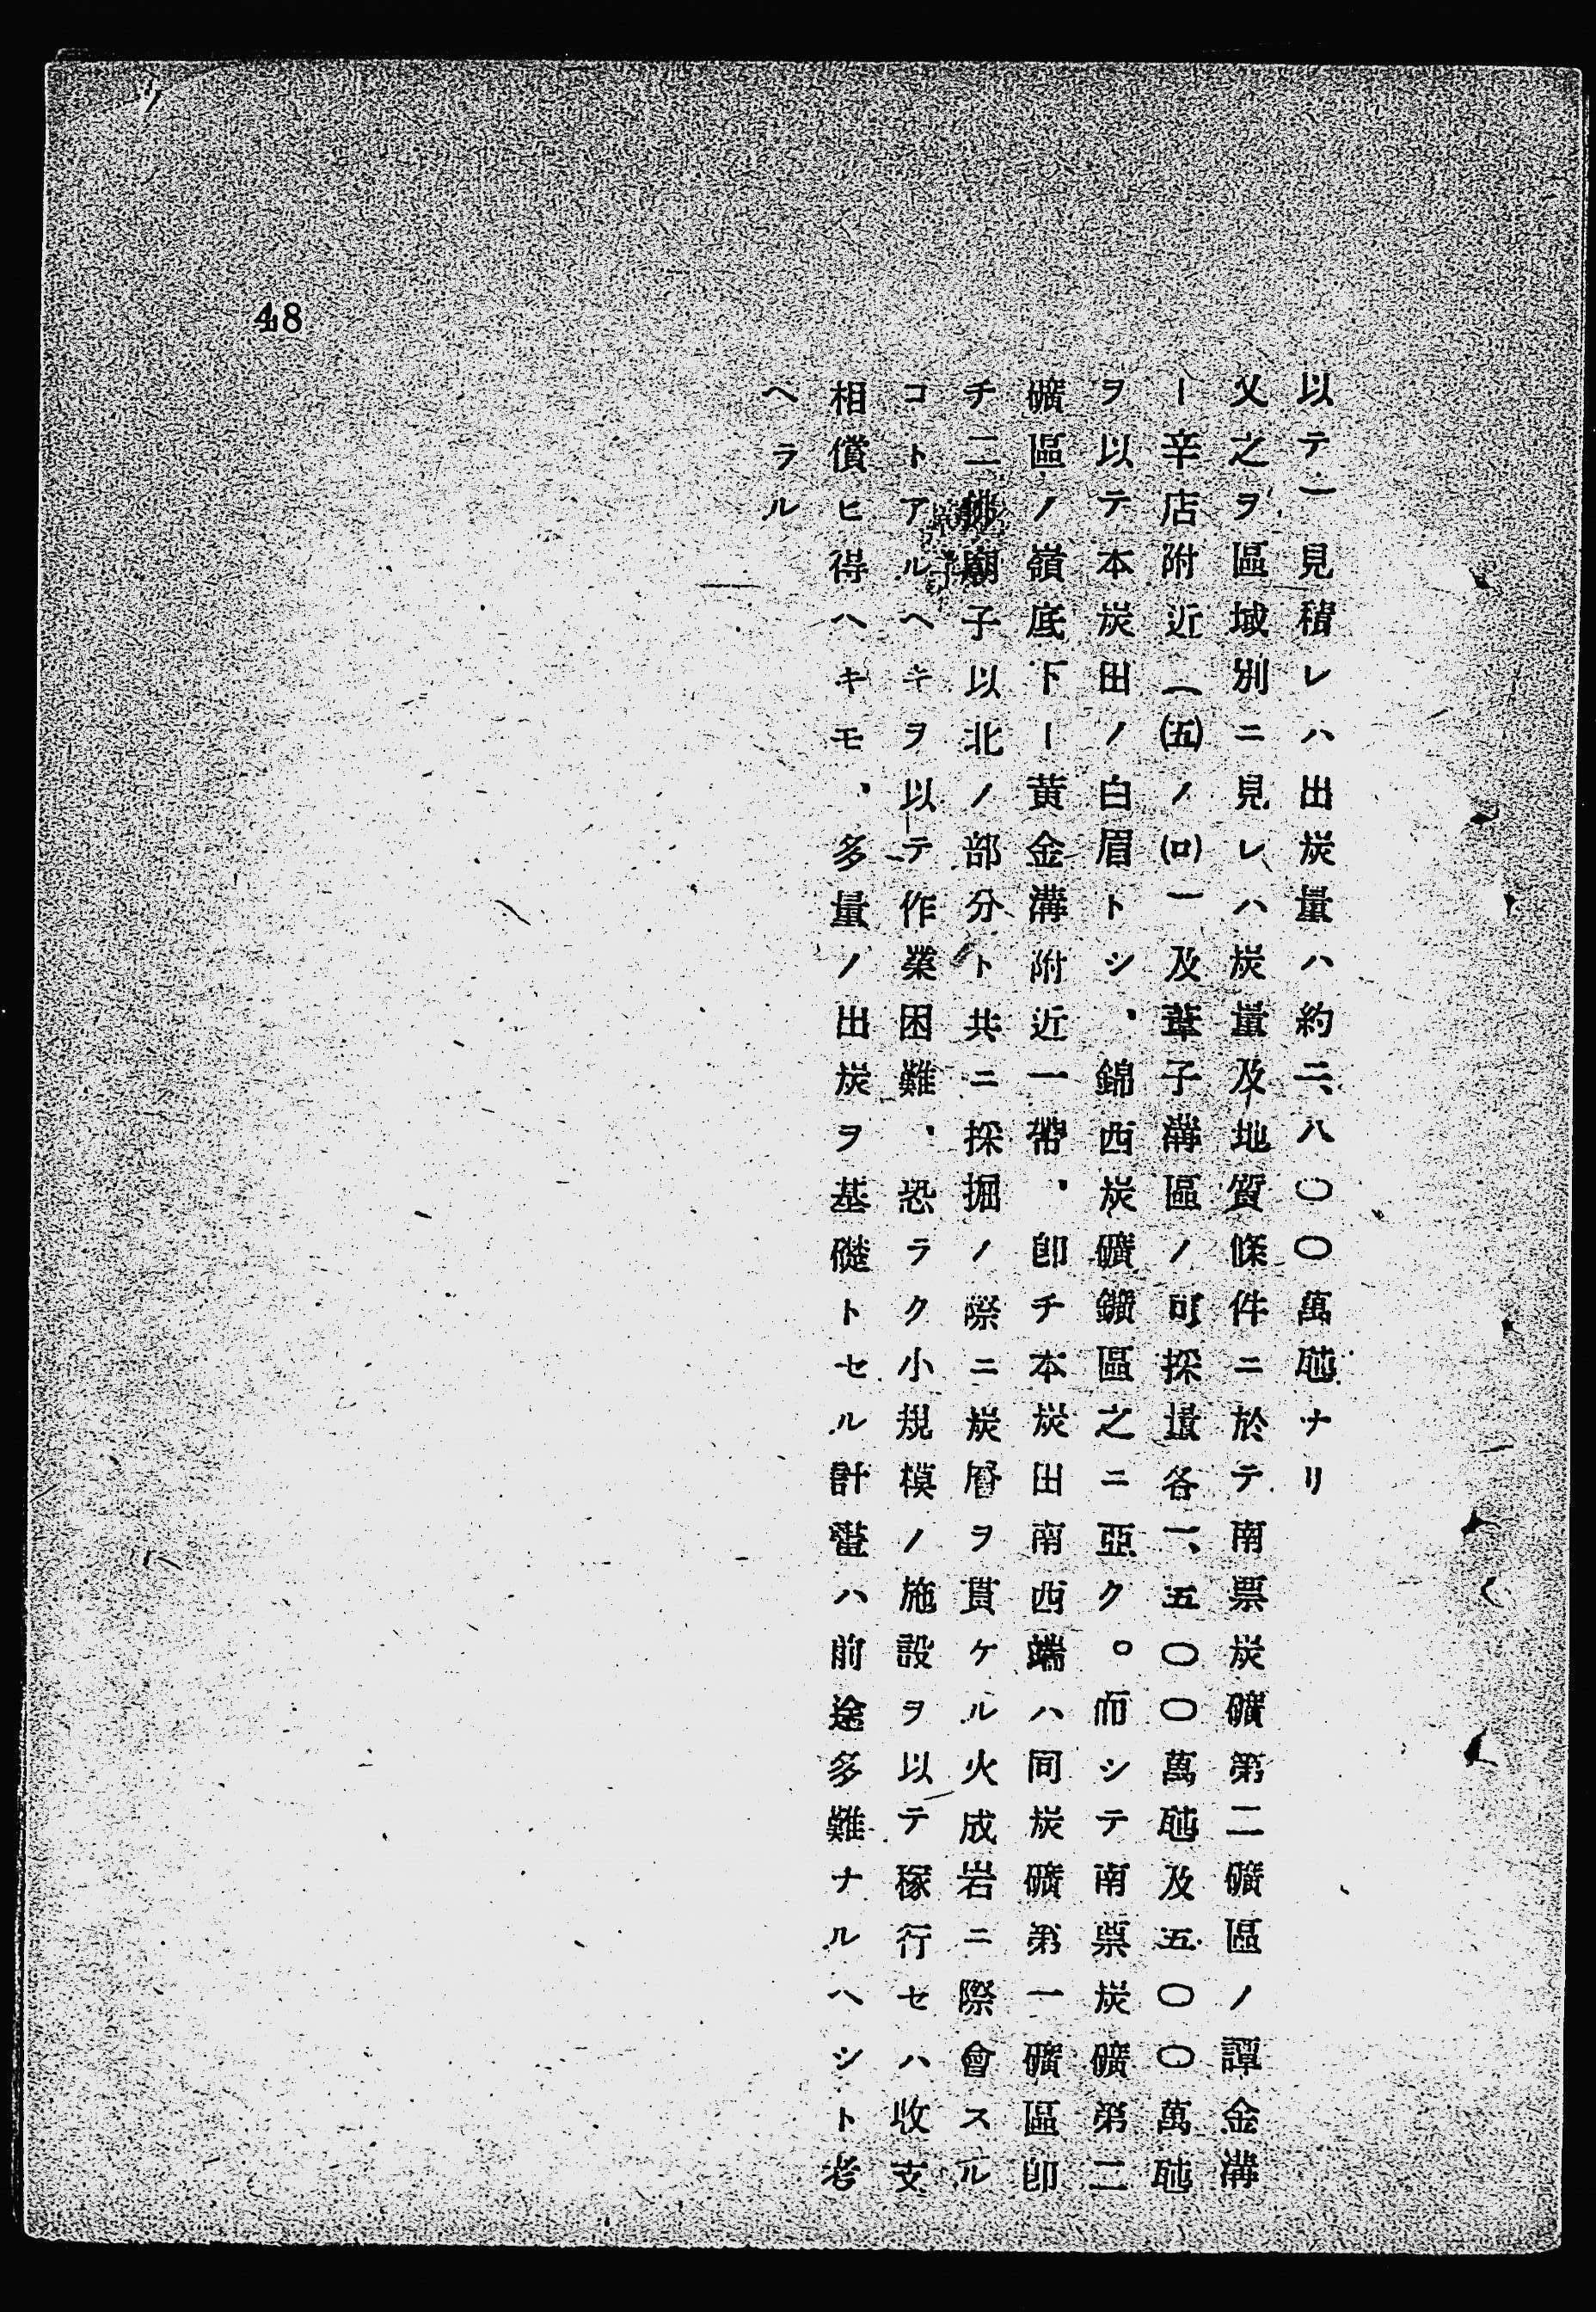 48
以テ一見積レハ出炭量ハ約二、八〇〇萬瓲ナリ
又之ヲ區域別ニ見レハ炭量及地質條件ニ於テ南票炭礦第二礦區ノ譚金溝
ー辛店附近(㈤ノ(ロ))及葦子溝區ノ可採量各一、五〇〇萬瓲及五〇〇萬瓲
ヲ以テ本炭田ノ白眉トシ、錦西炭礦鑛區之ニ亞ク。而シテ南票炭礦第二
礦區ノ嶺底下ー黃金溝附近一帶、卽チ本炭田南西端ハ同炭礦第一礦區卽
チ二佛廟子以北ノ部分ト共ニ採掘ノ際ニ炭層ヲ貫ケル火成岩ニ際會スル
コトアルヘキヲ以テ作業困難、恐ラク小規模ノ施設ヲ以テ稼行セハ收支
相償ヒ得ヘキモ、多量ノ出炭ヲ基礎トセル計畫ハ前途多難ナルヘシト考
ヘラル